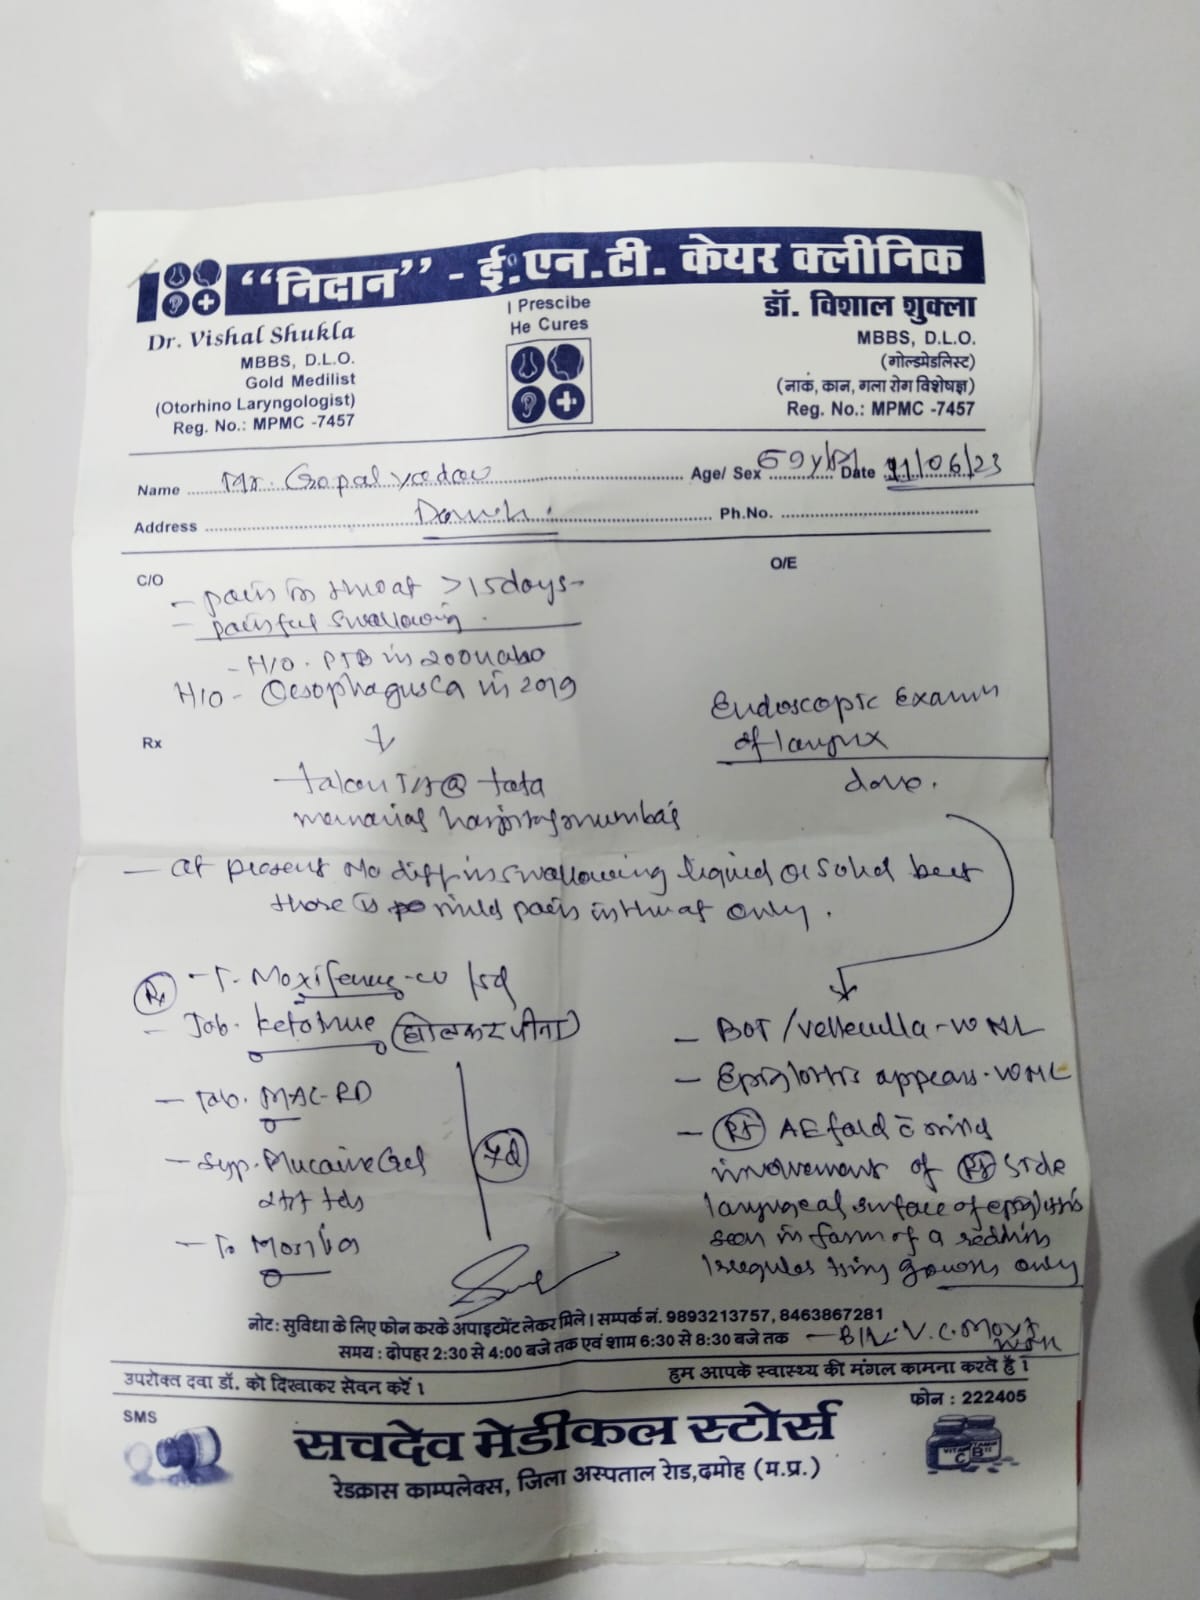 "निदान" - ई.एन.टी. केयर क्लीनिक
Dr. Vishal Shukla
MBBS, D.L.O.
Gold Medilist
(Otorhino Laryngologist)
Reg. No.: MPMC -7457
I Prescibe
He Cures
डॉ. विशाल शुक्ला
MBBS, D.L.O.
(गोल्डमेडलिस्ट)
(नाक, कान, गला रोग विशेषज्ञ)
Reg. No.: MPMC -7457
Name Mr. Gopal yadav Age/ Sex 69y/M Date 11/06/23
Address Damoh. Ph.No.
C/O
O/E
- pain in throat >15days-
- painful swallowing.
- H/O. PTB in
H/O - Oesophagus Ca in 2019
Rx
taken @ tata
memorial hospital mumbai
- at present No diff in swallowing liquid or solid but
there is mild pain in throat only.
Endoscopic Exam
of larynx
done.
Rx - T.
- Tab. (घोलकर पीना)
- Tab. MAC-RD
- Syp. Mucaine Gel
tds
- T.
7d
- BOT/vellecula-WNL
- Epiglottis appears-WNL
- Rt AE fold c̄ mild
involvement of Rt side
laryngeal surface of epiglottis
seen in form of a reddish
irregular tiny growth only
- B/L. V.C. Movt
नोट: सुविधा के लिए फोन करके अपाइटमेंट लेकर मिले। सम्पर्क नं. 9893213757, 8463867281
समय : दोपहर 2:30 से 4:00 बजे तक एवं शाम 6:30 से 8:30 बजे तक
उपरोक्त दवा डॉ. को दिखाकर सेवन करें।
हम आपके स्वास्थ्य की मंगल कामना करते हैं।
SMS
फोन : 222405
सचदेव मेडीकल स्टोर्स
रेडक्रास काम्पलेक्स, जिला अस्पताल रोड, दमोह (म.प्र.)
VITAMIN
C
B